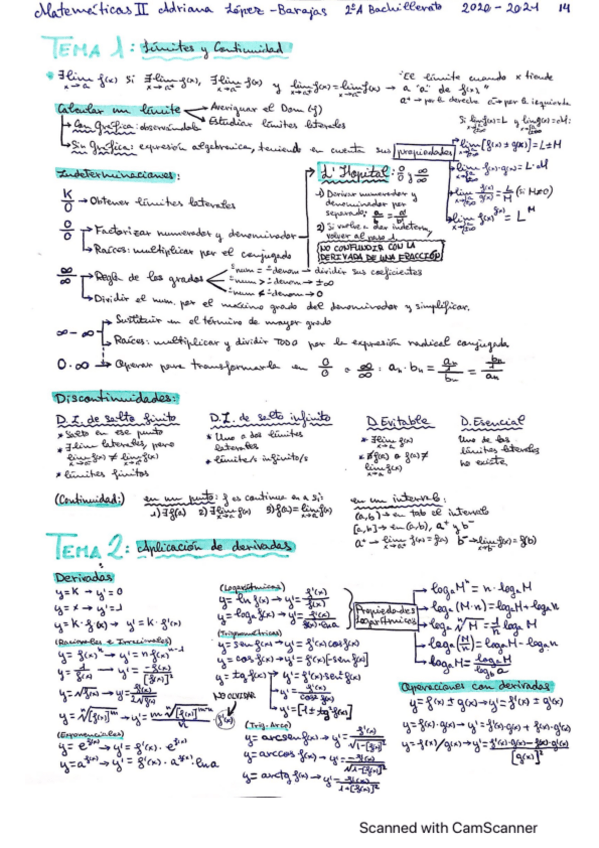 Matemáticas II Adriana López-Barajas 2ºA Bachillerato 2020-2021 14
TEMA 1: Límites y Continuidad
* ∃lim f(x) si ∃lim f(x), ∃lim f(x) y lim f(x) = lim f(x) →
x→a x→a⁺ x→a⁻ x→a⁺ x→a⁻
"El límite cuando x tiende
a "a" de f(x)"
a⁺→por la derecha a⁻→por la izquierda
Calcular un límite → Averiguar el Dom(f)
→ Estudiar límites laterales
→ Con gráfica: observándola
→ Sin gráfica: expresión algebraica, teniendo en cuenta sus propiedades
Si lim f(x)=L y lim g(x)=M:
lim [f(x) ± g(x)] = L±M
lim f(x)·g(x) = L·M
lim f(x)/g(x) = L/M (si M≠0)
lim f(x)^g(x) = L^M
Indeterminaciones:
K/0 → Obtener límites laterales
0/0 → Factorizar numerador y denominador
→ Raíces: multiplicar por el conjugado
L'Hopital: 0/0 y ∞/∞
1) Derivar numerador y
denominador por
separado
2) Si vuelve a dar indeterm,
volver al paso 1
NO CONFUNDIR CON LA
DERIVADA DE UNA FRACCIÓN
∞/∞ → Regla de los grados
º num = º denom → dividir sus coeficientes
º num > º denom → ±∞
º num < º denom → 0
→ Dividir el num. por el máximo grado del denominador y simplificar.
∞-∞ → Sustituir en el término de mayor grado
→ Raíces: multiplicar y dividir TODO por la expresión radical conjugada
0·∞ → Operar para transformarla en 0/0 o ∞/∞:
Discontinuidades:
D.I. de salto finito
* Salto en ese punto
* ∃lim laterales, pero
lim f(x) ≠ lim f(x)
x→a⁺ x→a⁻
* límites finitos
D.I. de salto infinito
* Uno o dos límites
laterales
* límite/s infinito/s
D. Evitable
* ∃lim f(x)
x→a
* ∄f(x) o f(x)≠
lim f(x)
x→a
D. Esencial
Uno de los
límites laterales
no existe
(Continuidad:) en un punto: f es continua en a si:
1) ∃f(a) 2) ∃lim f(x) 3) f(a)=lim f(x)
en un intervalo:
(a,b)→en tod el intervalo
[a,b]→en (a,b), a⁺ y b⁻
a⁺→ lim f(x)=f(a) b⁻→lim f(x)=f(b)
TEMA 2: Aplicación de derivadas
Derivadas
y=K → y'=0
y=x → y'=1
y=K·f(x) → y'=K·f'(x)
(Racionales e Irracionales)
y=f(x)ⁿ → y'=n·f(x)ⁿ⁻¹
y=1/f(x) → y'=-f'(x)/[f(x)]²
y=√f(x) → y'=f'(x)/2√f(x)
(Exponenciales)
y=e^f(x) → y'=f'(x)·e^f(x)
y=a^f(x) → y'=f'(x)·a^f(x)·ln a
NO OLVIDAR
f'(x)
(Logarítmicas)
y=ln f(x) → y'=f'(x)/f(x)
y=logₐ f(x) → y'=f'(x)/f(x)·ln a
(Trigonométricas)
y=sen f(x) → y'=f'(x)cos f(x)
y=cos f(x) → y'=f'(x)[-sen f(x)]
y=tg f(x)
(Trig. Arco)
y=arcsen f(x) → y'=f'(x)/√1-[f(x)]²
y=arccos f(x) → y'=-f'(x)/√1-[f(x)]²
y=arctg f(x) → y'=f'(x)/1+[f(x)]²
Propiedades
Logarítmicas
logₐ Mⁿ = n·logₐ M
logₐ (M·n) = logₐ M + logₐ n
logₐ ⁿ√M = 1/n logₐ M
logₐ (M/n) = logₐ M - logₐ n
Operaciones con derivadas
y=f(x)±g(x) → y'=f'(x)±g'(x)
y=f(x)·g(x) → y'=f'(x)·g(x)+f(x)·g'(x)
y=f(x)/g(x) → y'=f'(x)·g(x)-f(x)·g'(x)/[g(x)]²
Scanned with CamScanner